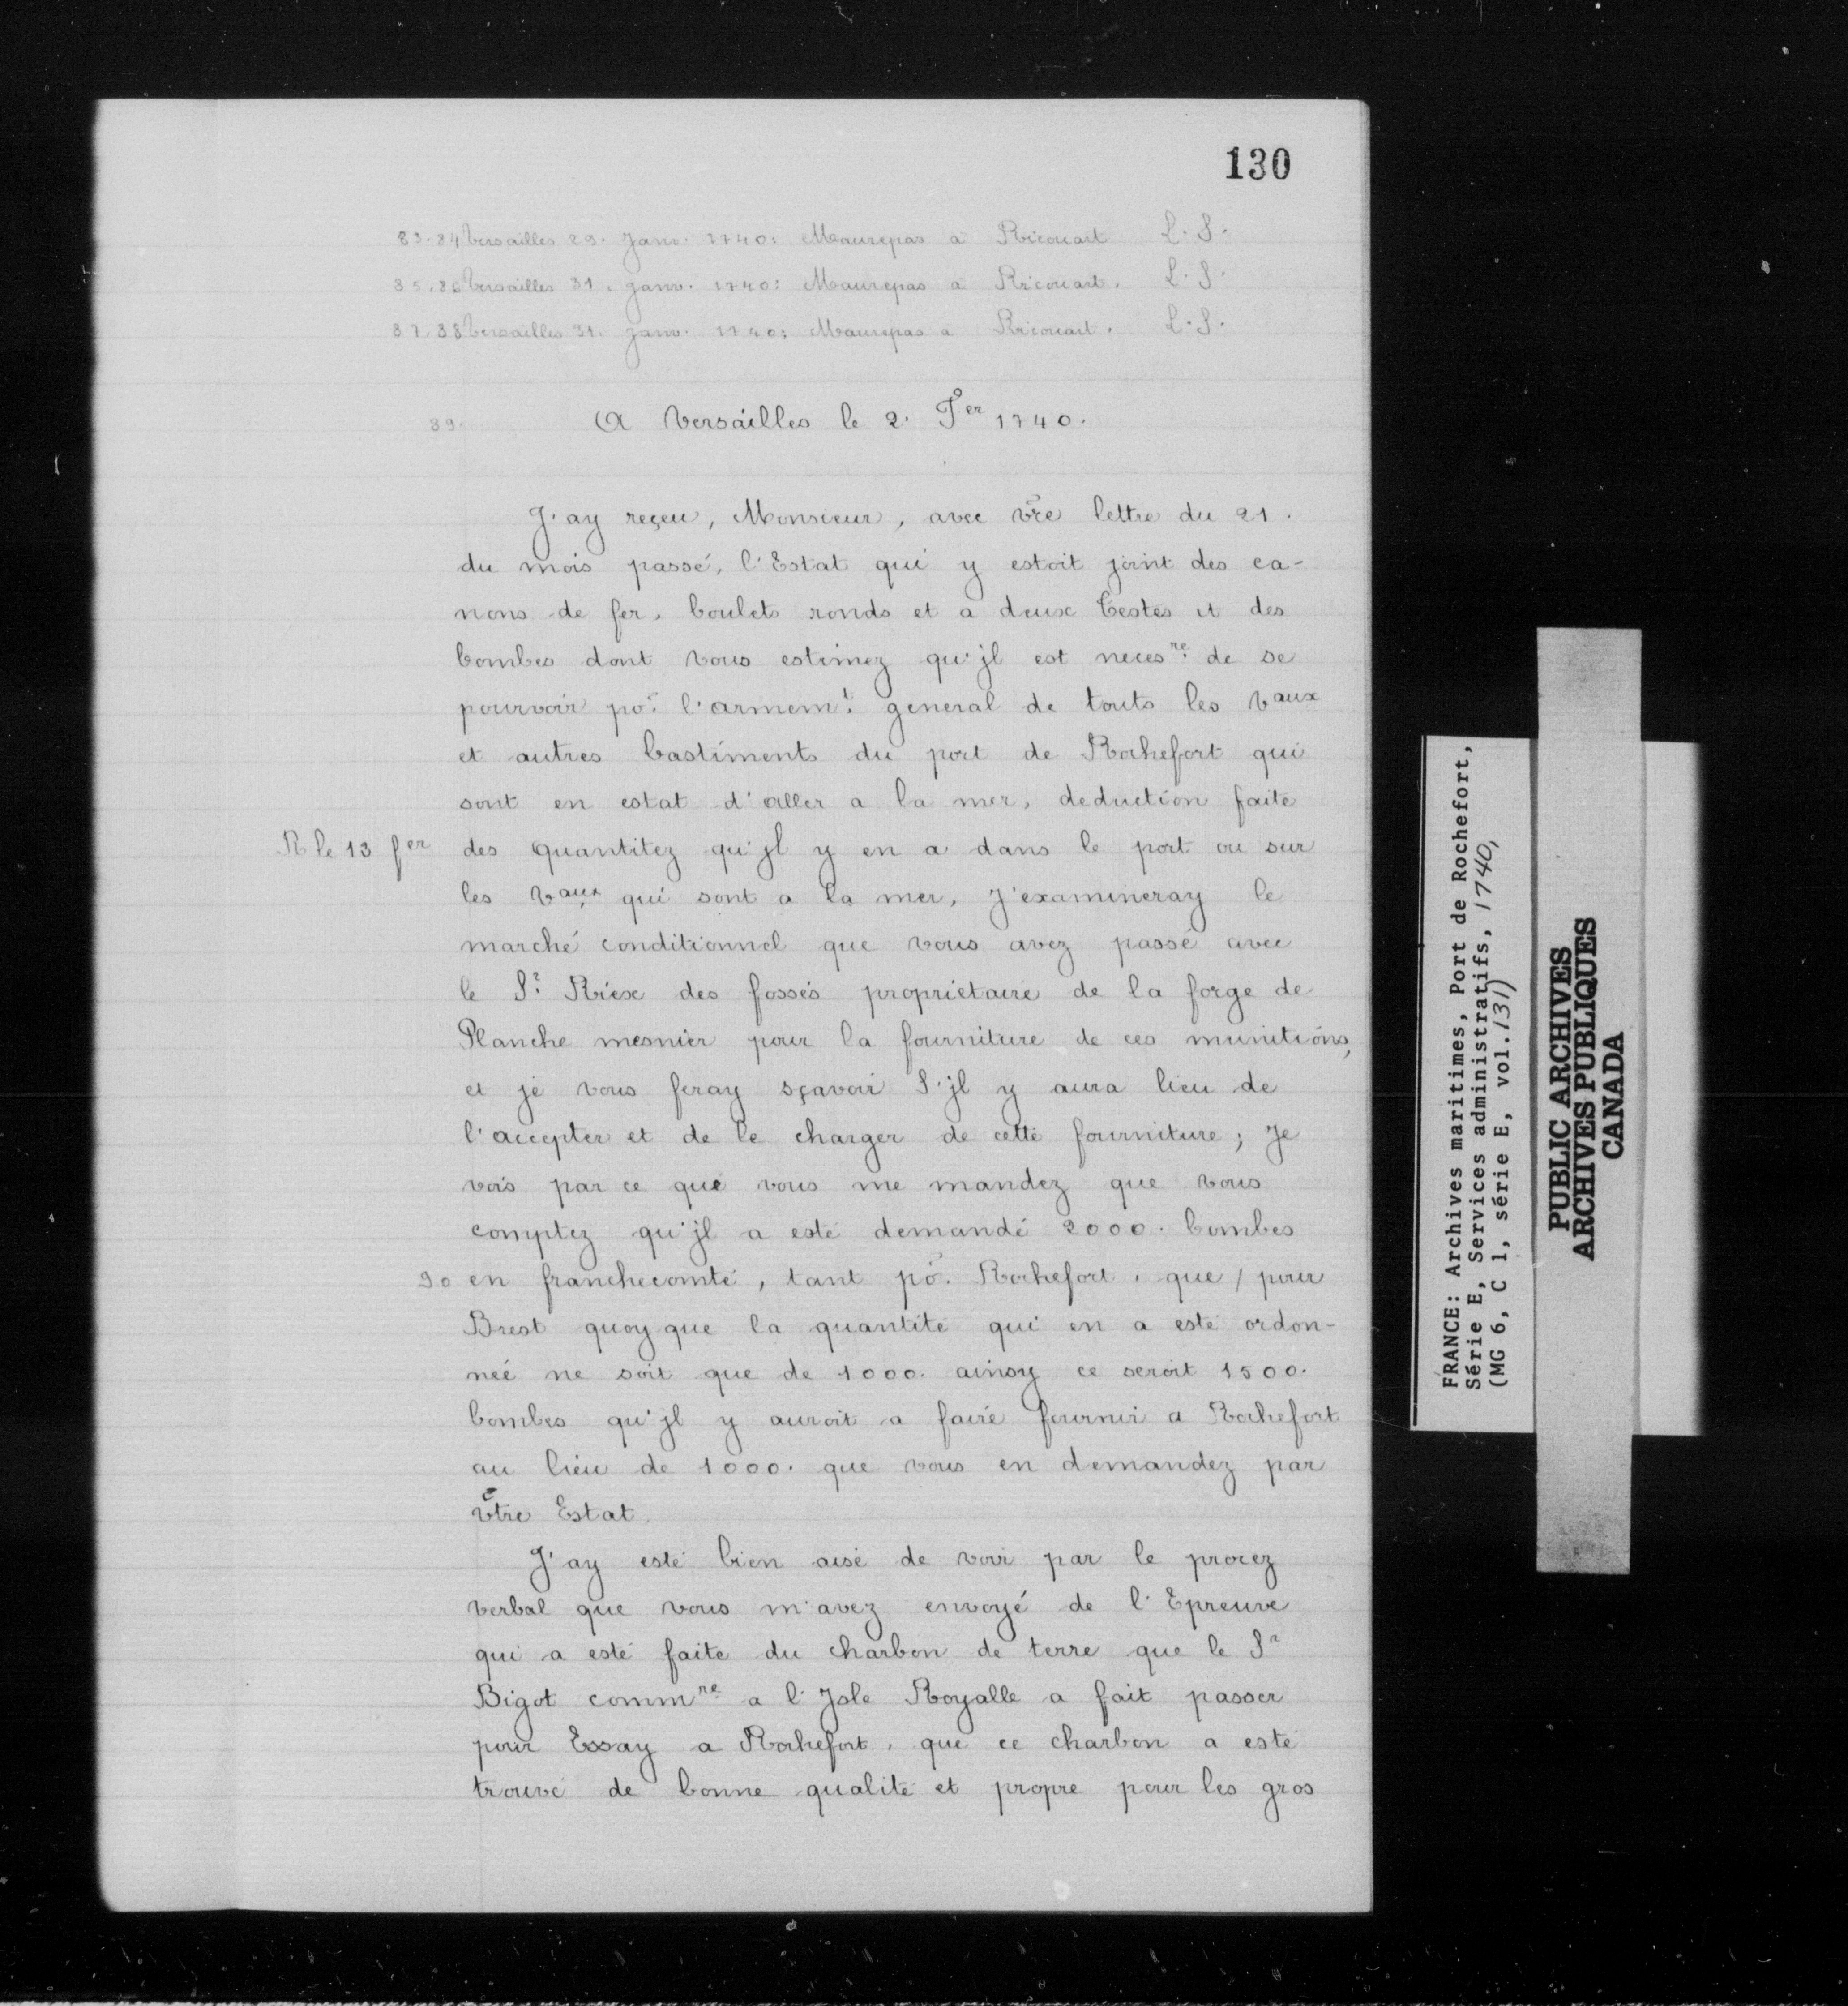 130
83.84 Versailles 29. Janv. 1740: Maurepas a Ricouart L.S.
85.86 Versailles 31. Janv. 1740: Maurepas a Ricouart. L.S.
87.88 Versailles 31. Janv. 1740: Maurepas a Ricouart. L.S.
89. A Versailles le 2. Fer 1740.
J'ay reçeu, Monsieur, avec vre lettre du 21.
du mois passé, l'Estat qui y estoit joint des ca-
nons de fer, boulets ronds et a deux testes et des
bombes dont vous estimez qu'jl est necesre de se
pourvoir por l'armemt general de touts les vaux
et autres bastiments du port de Rochefort qui
sont en estat d'aller a la mer, deduction faite
R le 13 fer des quantitez qu'jl y en a dans le port ou sur
les vaux qui sont a la mer, J'examineray le
marché conditionnel que vous avez passé avec
le Sr Riex des fossés propriétaire de la forge de
Planche mesnier pour la fourniture de ces munitions,
et je vous feray sçavoir S'jl y aura lieu de
l'accepter et de le charger de cette fourniture; Je
vois par ce que vous me mandez que vous
comptez qu'jl a esté demandé 2000. bombes
90 en franchecomté, tant po. Rochefort, que / pour
Brest quoyque la quantité qui en a esté ordon-
neé ne soit que de 1000. ainsy ce seroit 1500.
bombes qu'jl y auroit a faire fournir a Rochefort
au lieu de 1000. que vous en demandez par
vtre Estat.
J'ay esté bien aisé de voir par le procez
verbal que vous m'avez envoyé de l'Epreuve
qui a esté faite du charbon de terre que le Sr
Bigot commre a l'Jsle Royalle a fait passer
pour Essay a Rochefort, que ce charbon a esté
trouvé de bonne qualité et propre pour les gros
FRANCE: Archives maritimes, Port de Rochefort,
Série E, Services administratifs, 1740,
(MG 6, C 1, série E, vol.131)
PUBLIC ARCHIVES
ARCHIVES PUBLIQUES
CANADA